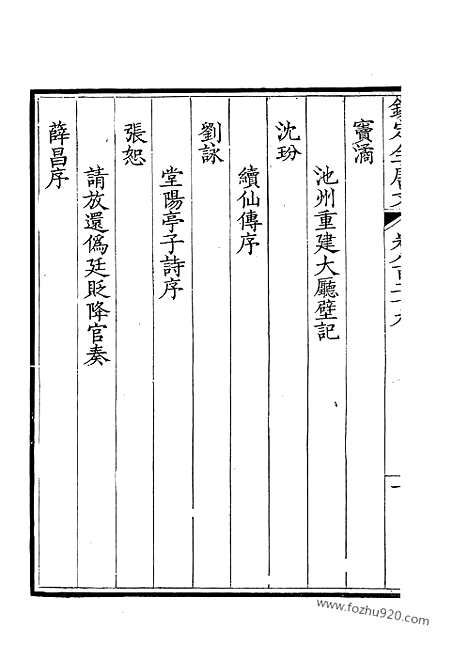 竇潏
池州重建大廳壁記
沈玢
續仙傳序
劉詠
堂陽亭子詩序
張恕
請放還偽廷貶降官奏
薛昌序
www.fozhu920.com